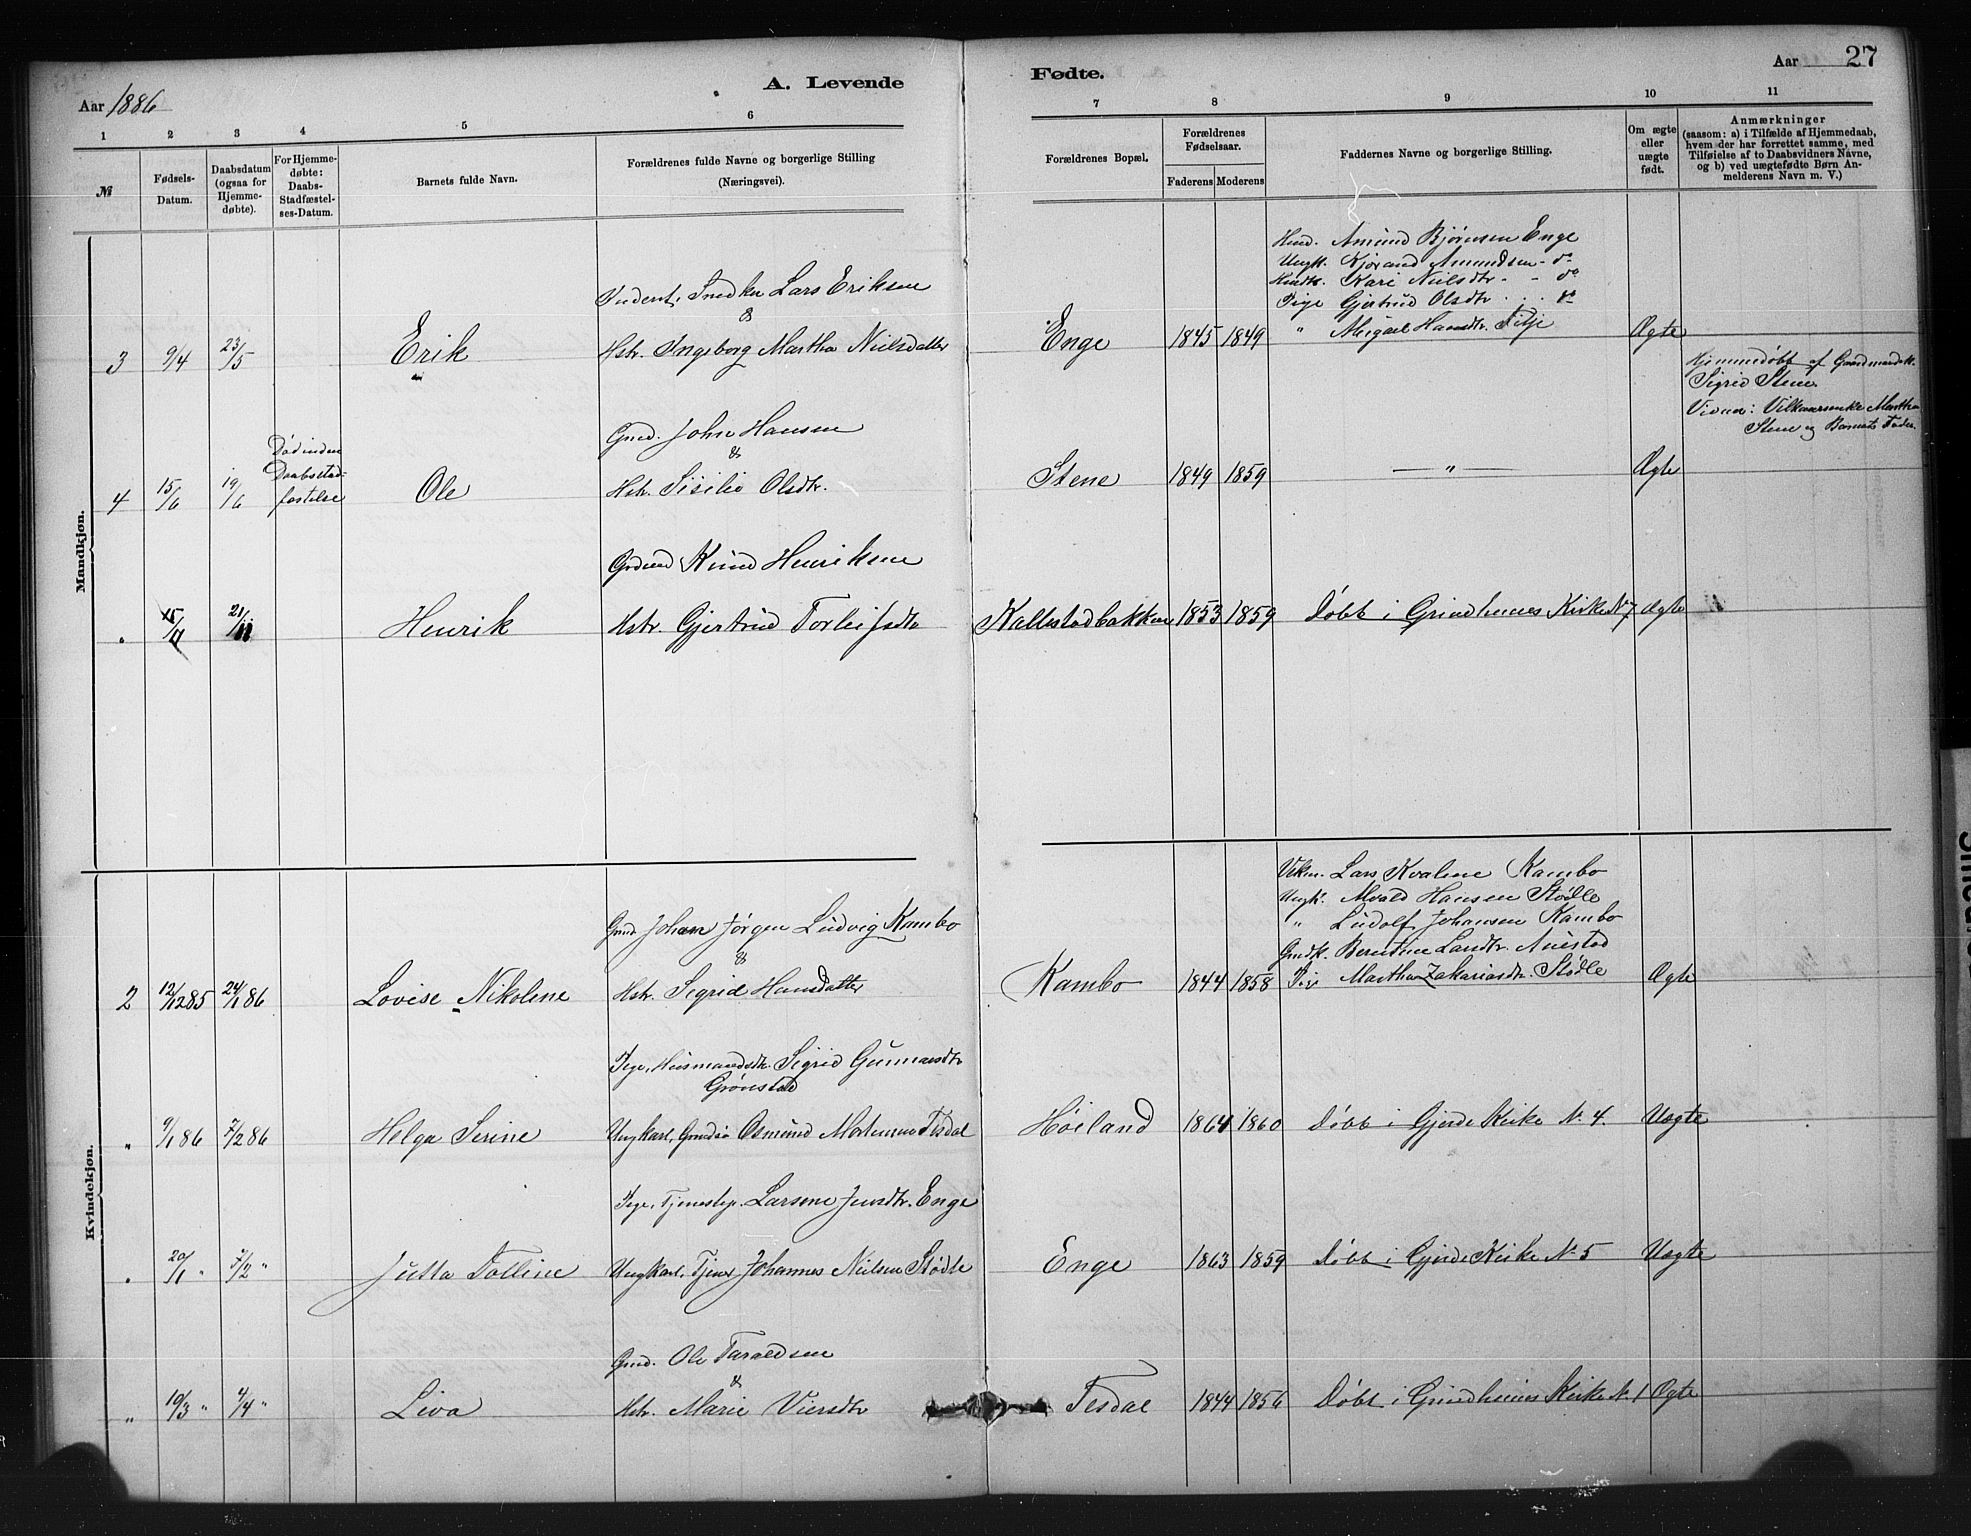 Aar 1886
A. Levende
Fødte.
Aar 27
1 2 3 4 5 6 7 8 9 10 11
№
Fødsels-
Datum.
Daabsdatum
(ogsaa for
Hjemme-
døbte).
For Hjemme-
døbte:
Daabs-
Stadfæstel-
ses-Datum.
Barnets fulde Navn.
Forældrenes fulde Navne og borgerlige Stilling
(Næringsvei).
Forældrenes Bopæl.
Forældrenes
Fødselsaar.
Faderens Moderens
Faddernes Navne og borgerlige Stilling.
Om ægte
eller
uægte
født.
Anmærkninger
(saasom: a) i Tilfælde af Hjemmedaab,
hvem der har forrettet samme, med
Tilføielse af to Daabsvidners Navne,
og b) ved uægtefødte Børn An-
melderens Navn m. V.)
Mandkjøn.
Inderst, Snedker Lars Eriksen
&
3 9/4 23/5 Erik Hstr. Ingeborg Martha Nielsdatter Enge 1845 1849 Ægte
Amund Bjørnsen Enge
Ungk. Kjørand Amundsen - do
Kari Nielsdtr. - do
Pige Gjertrud Olsdtr. do
" Hansdtr. Fitje
Død inden
Daabsstad-
festelse
Gmd. John Hansen
&
4 15/6 19/6 Ole Hstr. Sisilie Olsdtr. Stene 1849 1859 — " — Ægte
Hjemmedøbt af Gaardmandsk.
Sigrid Stene
Vidner: Martha
Stene og Barnets Fader.
Knud Henriksen
" 15/9 21/11 Henrik Hstr. Gjertrud Torleifsdtr Kallestadbakken 1853 1859 Døbt i Grindheims Kirke N. 7 Ægte
Kvindekjøn.
Gmd. Johan Jørgen Ludvig Kambo
&
2 12/12 85 24/1 86 Lovise Nikoline Hstr. Sigrid Hansdatter Kambo 1844 1858 Ægte
Lars Kvalene Kambo
Ungk. Alvald Hansen Stødle
" Ludolf Johansen Kambo
Gmdk. Berentine Larsdtr.
Pige Martha Zakariasdtr. Stødle
Pige, Husmandsdtr. Sigrid Gunnarsdtr
Grønstad
" 9/1 86 7/2 86 Helga Serine Ungkarl, Osmund Mortensen Tesdal Høiland 1864 1860 Døbt i Gjerde Kirke N. 4. Uægte
Pige, Tjenestep. Larsene Jensdtr. Enge
" 20/1 " 7/2 " Jutta Tolline Ungkarl, Tjener Johannes Nielsen Stødle Enge 1863 1859 Døbt i Gjerde Kirke N. 5 Uægte
Gmd. Ole Taraldsen
&
" 10/3 " 4/4 " Liva Hstr. Marie Tesdal 1844 1856 Døbt i Grindheims Kirke N. 1 Ægte